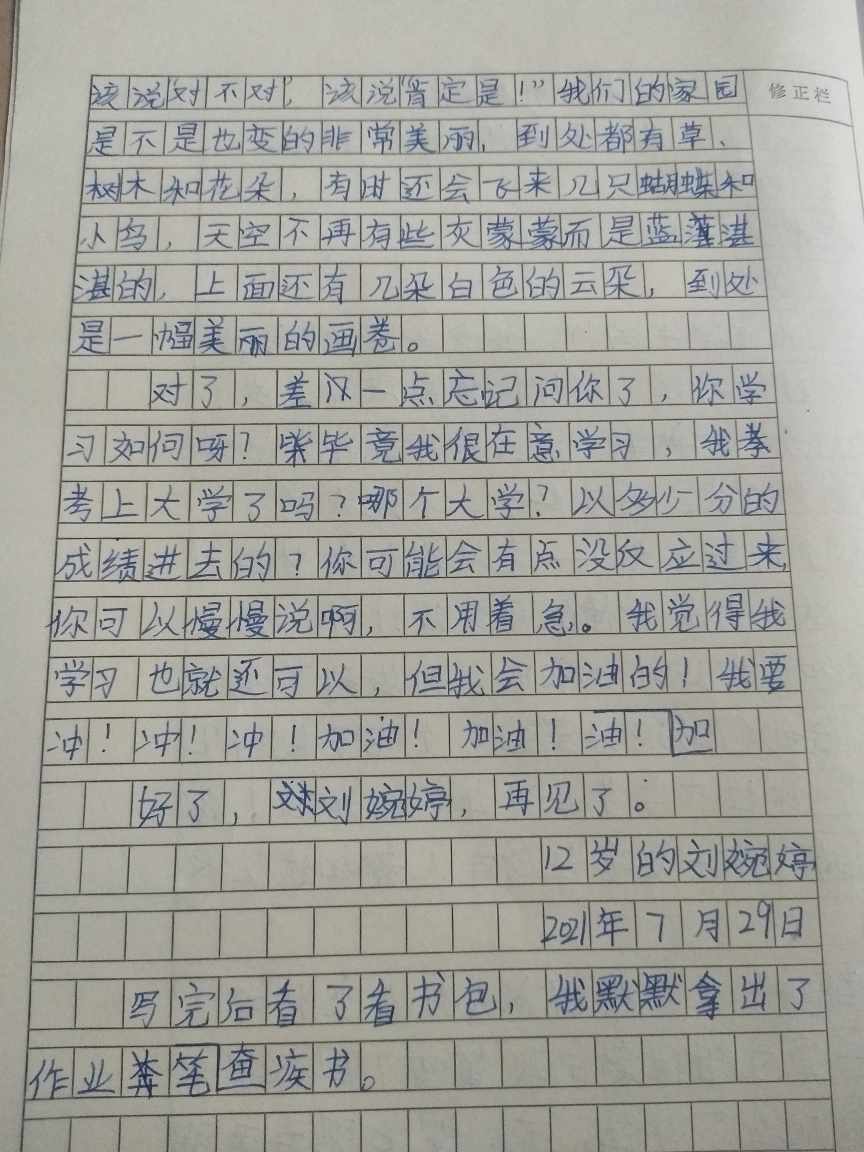 该说对不对,该说“肯定是!”我们的家园
修正栏
是不是也变的非常美丽,到处都有草、
树木和花朵,有时还会飞来几只蝴蝶和
小鸟,天空不再有些灰蒙蒙而是蓝湛
湛的,上面还有几朵白色的云朵,到处
是一幅美丽的画卷。
对了,差一点忘记问你了,你学
习如何呀?毕竟我很在意学习,我
考上大学了吗?哪个大学?以多少分的
成绩进去的?你可能会有点没反应过来,
你可以慢慢说啊,不用着急。我觉得我
学习也就还可以,但我会加油的!我要
冲!冲!冲!加油!加油!油!加
好了,刘婉婷,再见了。
12岁的刘婉婷
2021年7月29日
写完后看了看书包,我默默拿出了
作业笔奋疾书。